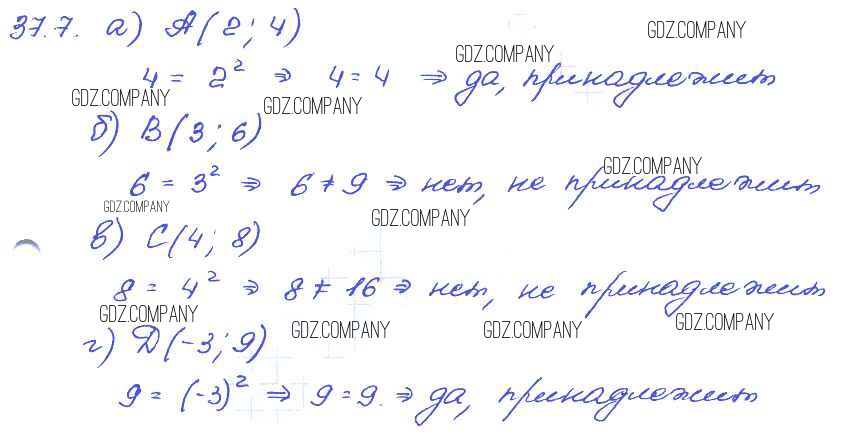 37.7. а) А(2; 4)
GDZ.COMPANY
GDZ.COMPANY
4 = 2² ⇒ 4 = 4 ⇒ да, принадлежит
GDZ.COMPANY
GDZ.COMPANY
б) В(3; 6)
GDZ.COMPANY
6 = 3² ⇒ 6 ≠ 9 ⇒ нет, не принадлежит
GDZ.COMPANY
GDZ.COMPANY
в) С(4; 8)
8 = 4² ⇒ 8 ≠ 16 ⇒ нет, не принадлежит
GDZ.COMPANY
GDZ.COMPANY
GDZ.COMPANY
GDZ.COMPANY
г) D(-3; 9)
9 = (-3)² ⇒ 9 = 9. ⇒ да, принадлежит